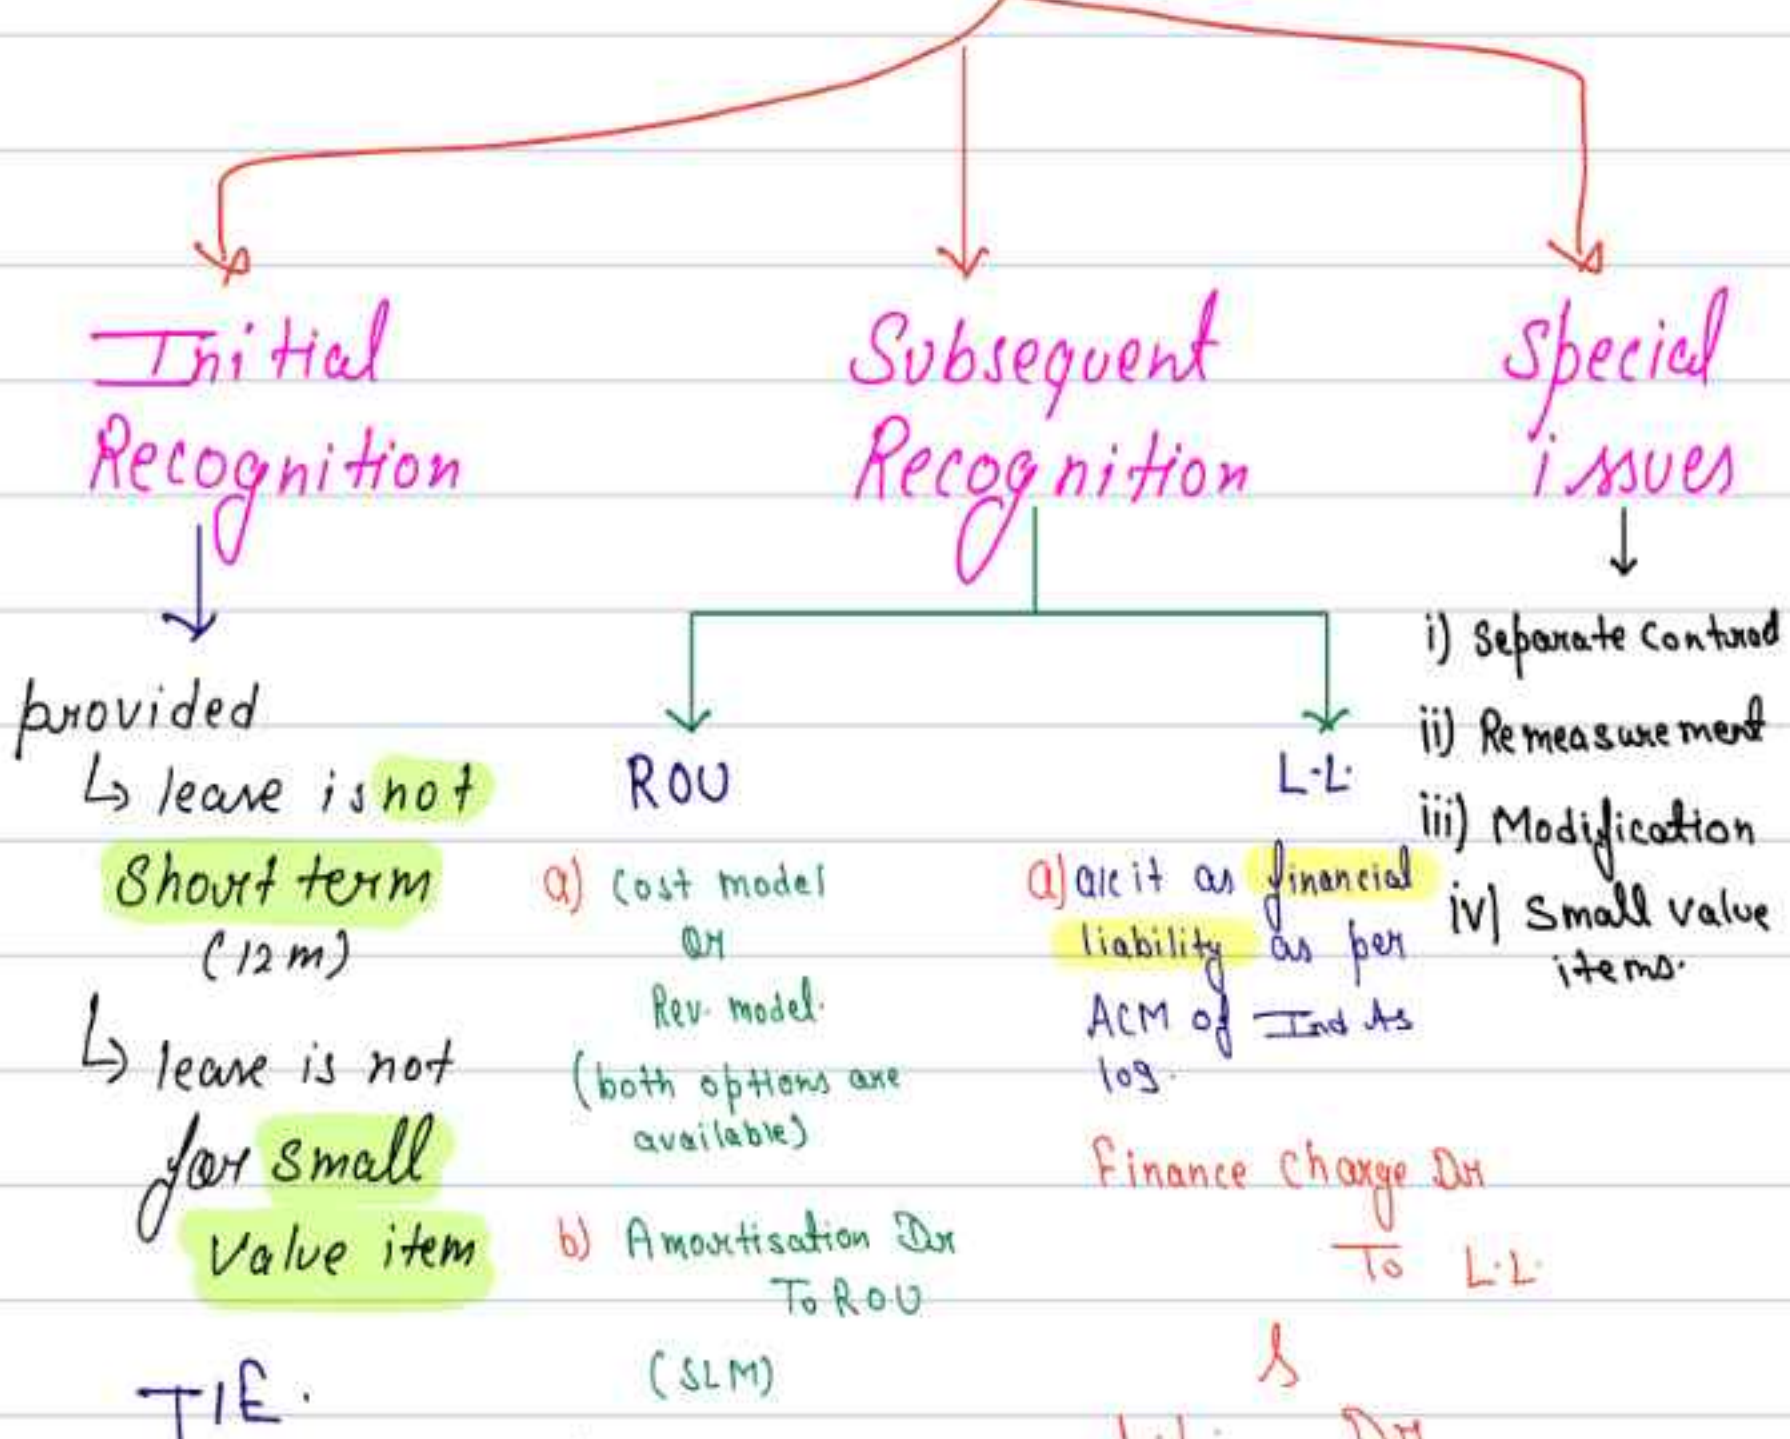 Initial
Recognition
provided
↳ lease is not
Short term
(12m)
↳ lease is not
for small
Value item
TIE.
Subsequent
Recognition
ROU
a) Cost model
or
Rev. model.
(both options are
available)
b) Amortisation Dr
To ROU
(SLM)
L.L.
a) a/c it as financial
liability as per
ACM of Ind As
109.
Finance charge Dr
To L.L.
&
Special
issues
i) Separate Contract
ii) Remeasurement
iii) Modification
iv) Small value
items.